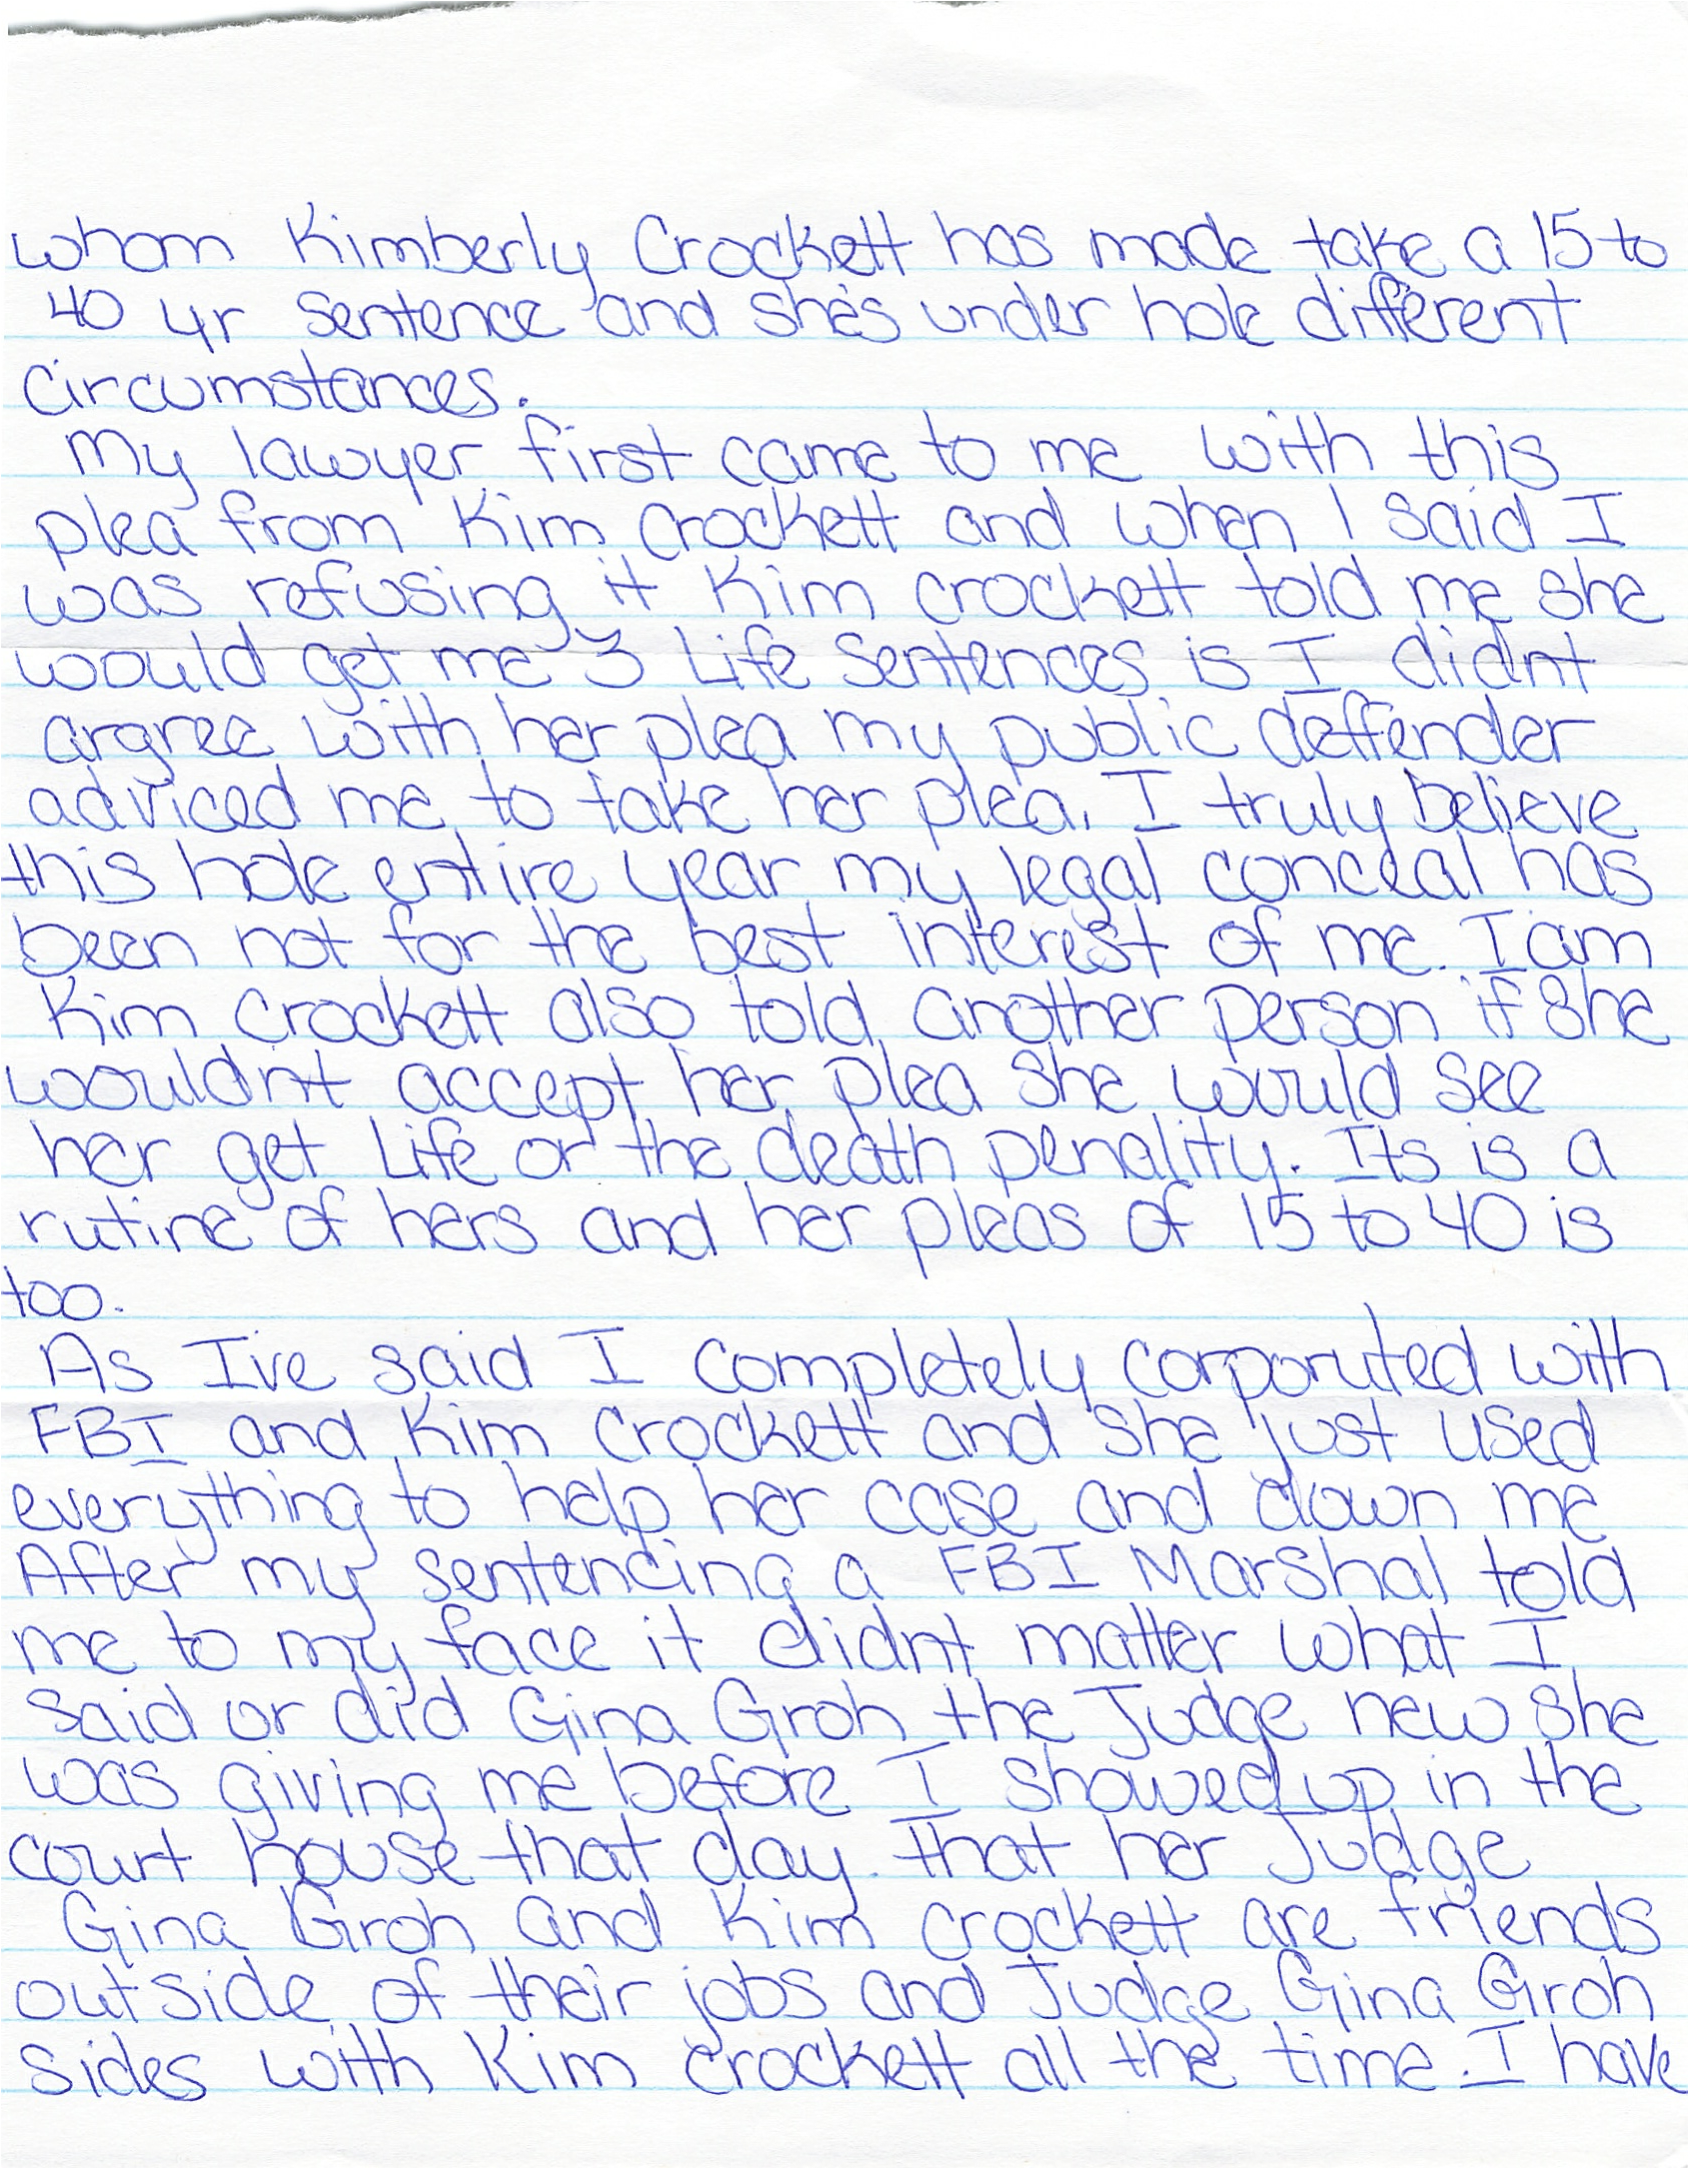 whom Kimberly Crockett has made take a 15 to
40 yr sentence and she's under hole different
circumstances.
My lawyer first came to me with this
plea from Kim Crockett and when I said I
was refusing it Kim Crockett told me she
would get me 3 Life Sentences is I didnt
argree with her plea my public deffender
adviced me to take her plea. I truly believe
this hole entire year my legal conceal has
been not for the best interest of me. I am
Kim Crockett also told another person if she
wouldnt accept her plea she would see
her get Life or the death penality. Its is a
rutine of hers and her pleas of 15 to 40 is
too.
As I've said I completely corporuted with
FBI and Kim Crockett and she just used
everything to help her case and down me
After my sentencing a FBI Marshal told
me to my face it didnt matter what I
said or did Gina Groh the Judge new she
was giving me before I showed up in the
court house that day. That her Judge
Gina Groh and Kim Crockett are friends
outside of their jobs and Judge Gina Groh
sides with Kim Crockett all the time. I have